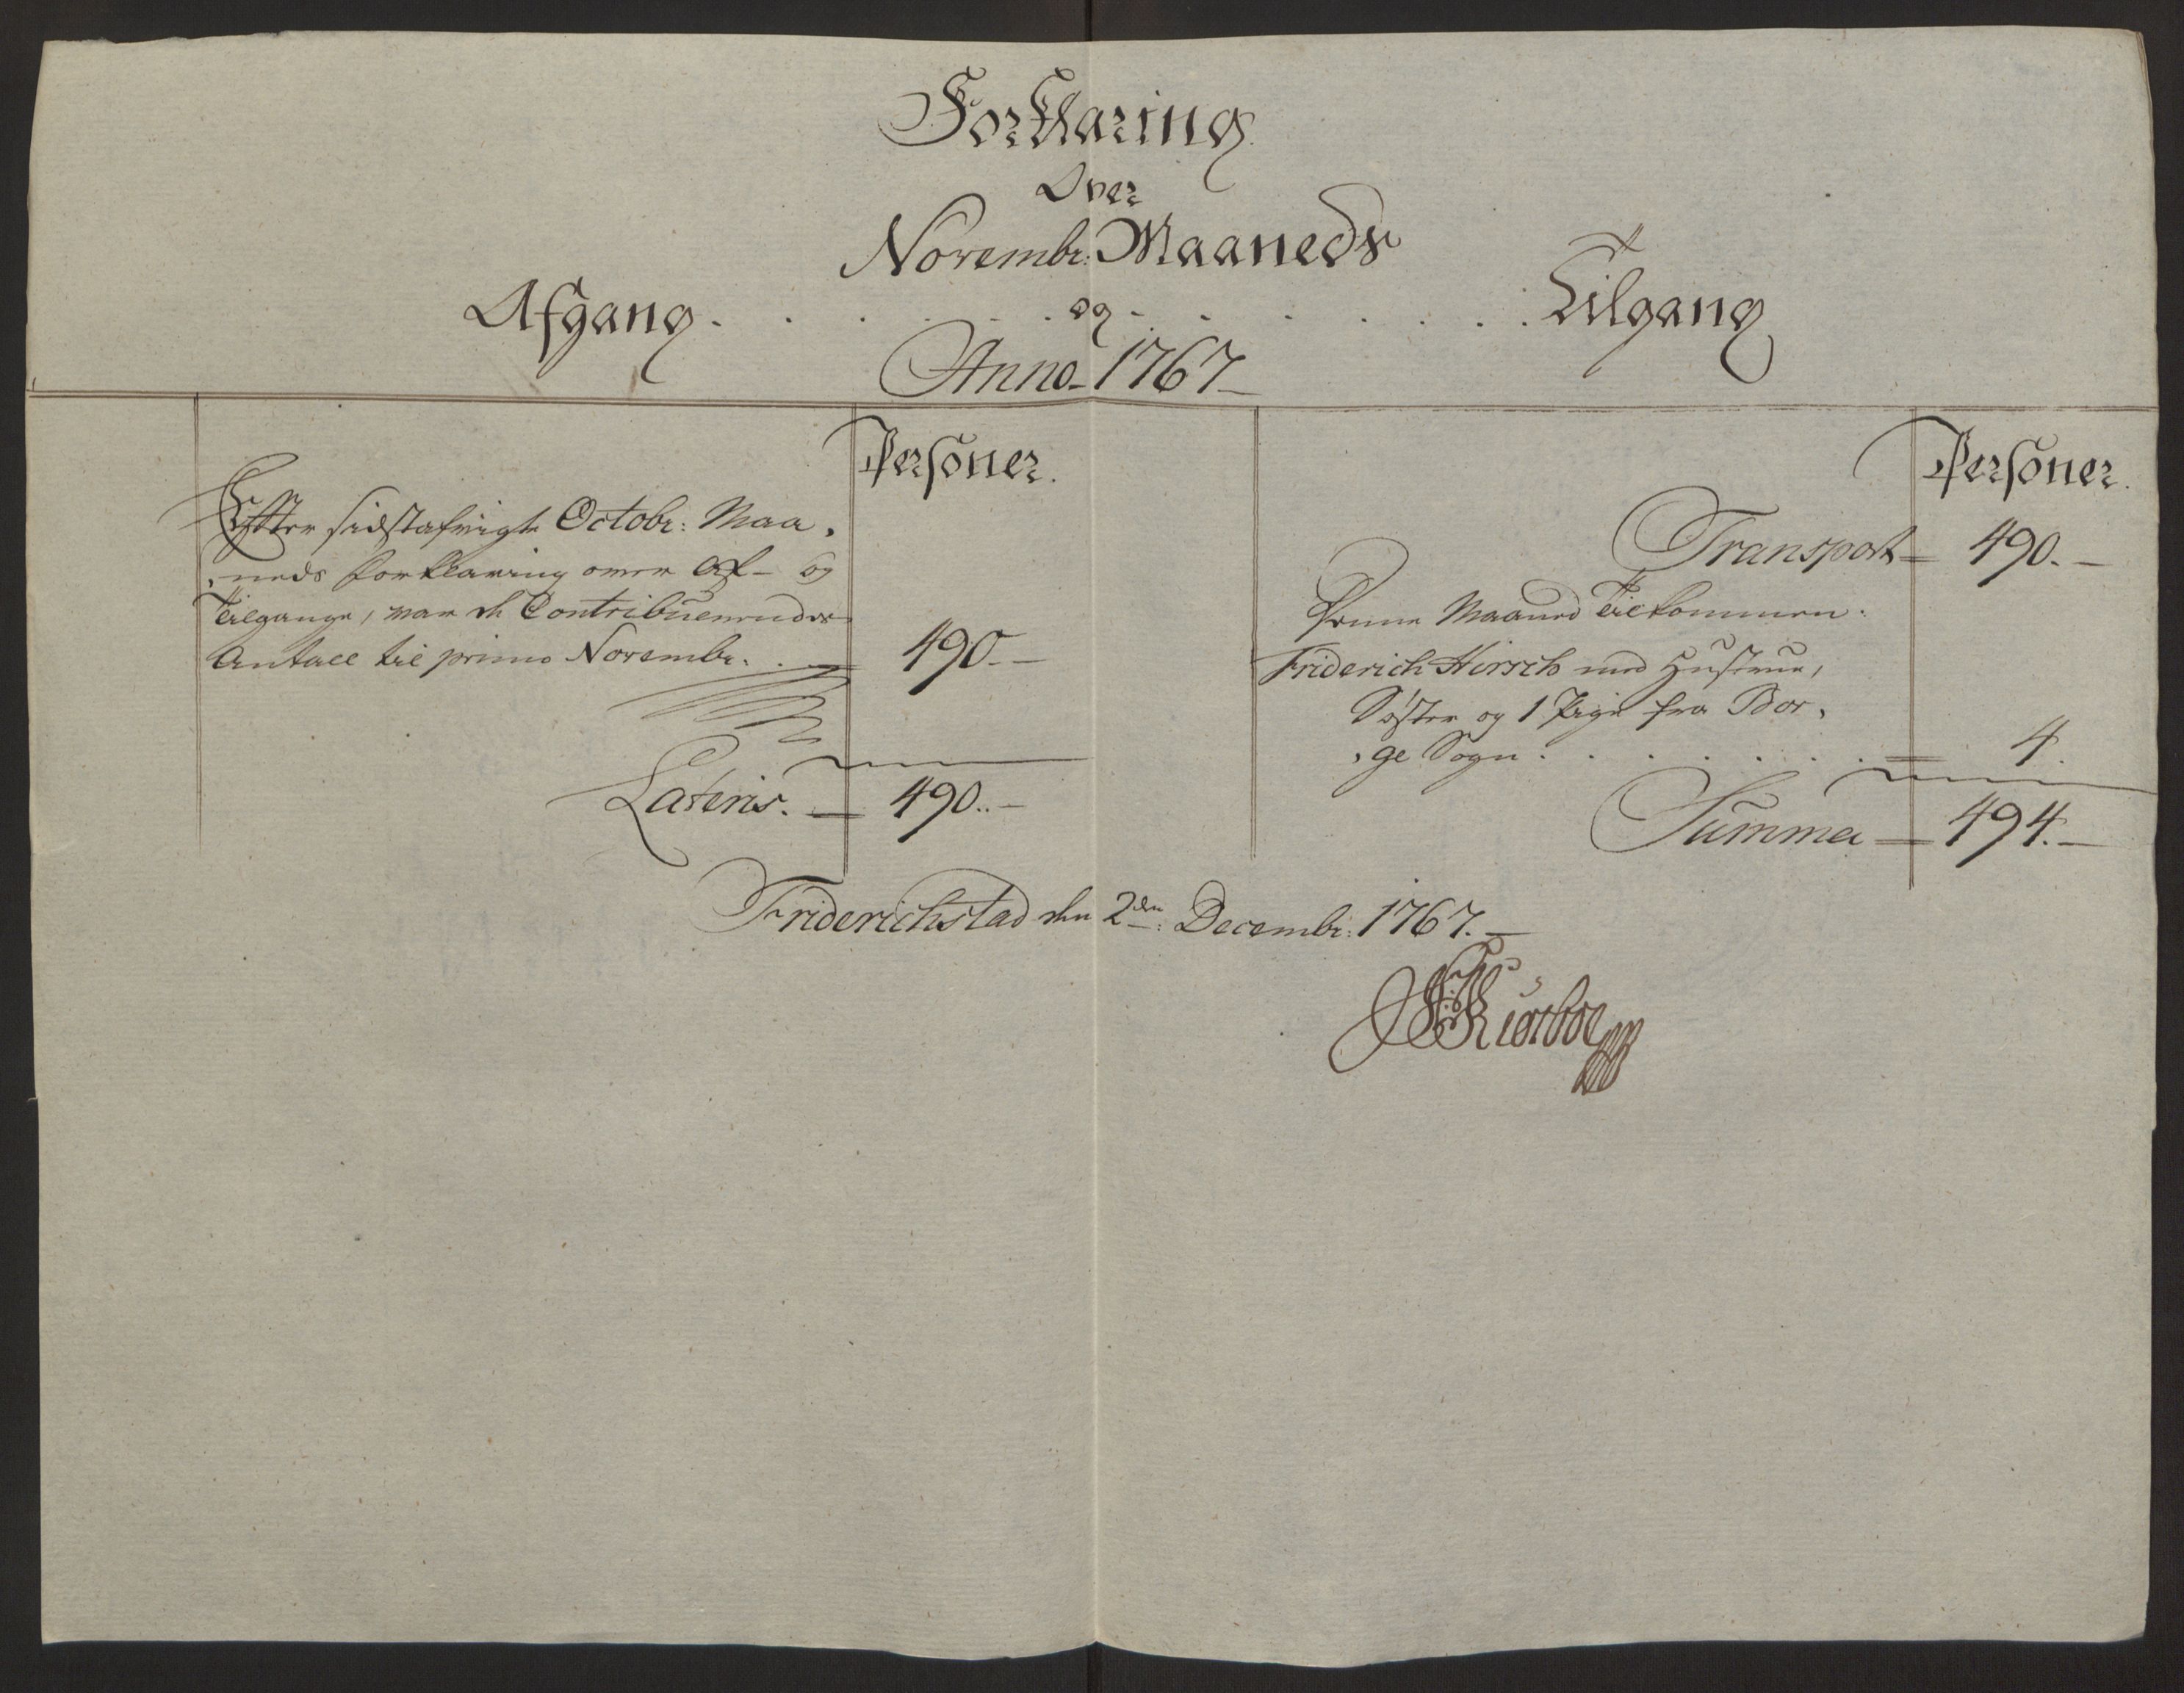 Forklaring
Over
Novembr: Maaneds
Afgang . . . . . . og . . . . . . . Tilgang
Anno 1767
Personer.
Efter sidstafvigte Octobr: Maa-
neds forklaring over Af- og
Tilgange, var de Contribuerendes
Antall til primo Novembr. . 490.
Lateris. 490.
Personer.
Transport 490.
Denne Maaned Tilkommen.
Friderich Hirsch med Hustrue,
Søster og 1 Pige fra Bor-
ge Sogn . . . . . . . 4.
Summa 494.
Friderichstad den 2den Decembr: 1767.